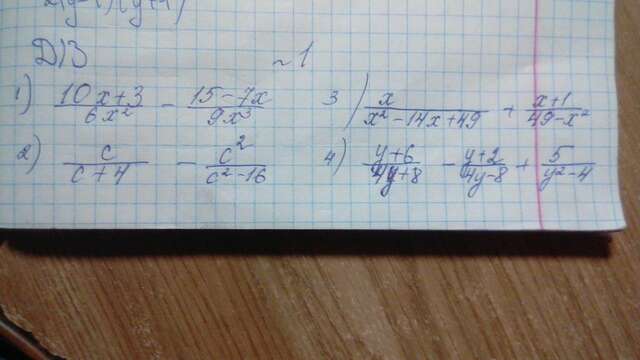 2(y-1)(y+1)
Д/З ~1
1) (10x+3)/(6x²) - (15-7x)/(9x³)
3) x/(x²-14x+49) + (x+1)/(49-x²)
2) c/(c+4) - c²/(c²-16)
4) (y+6)/(4y+8) - (y+2)/(4y-8) + 5/(y²-4)